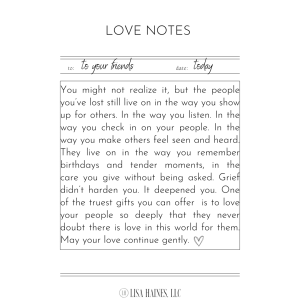 LOVE NOTES
to: to your friends date: today
You might not realize it, but the people
you've lost still live on in the way you show
up for others. In the way you listen. In the
way you check in on your people. In the
way you make others feel seen and heard.
They live on in the way you remember
birthdays and tender moments, in the
care you give without being asked. Grief
didn't harden you. It deepened you. One
of the truest gifts you can offer is to love
your people so deeply that they never
doubt there is love in this world for them.
May your love continue gently. ♡
LH LISA HAINES, LLC